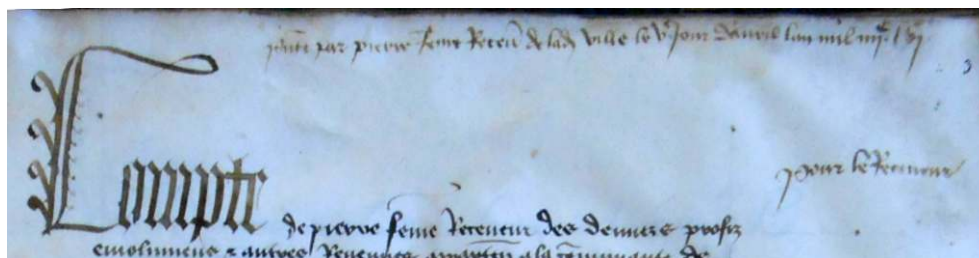 par pierre seme Receu de lad ville le ve jour davril lan mil iiijc lvj
pour le Receveur
Compte
de pierre seme Receveur des deniers prosfiz
emolumens & autres Revenues apparten a la communaute de